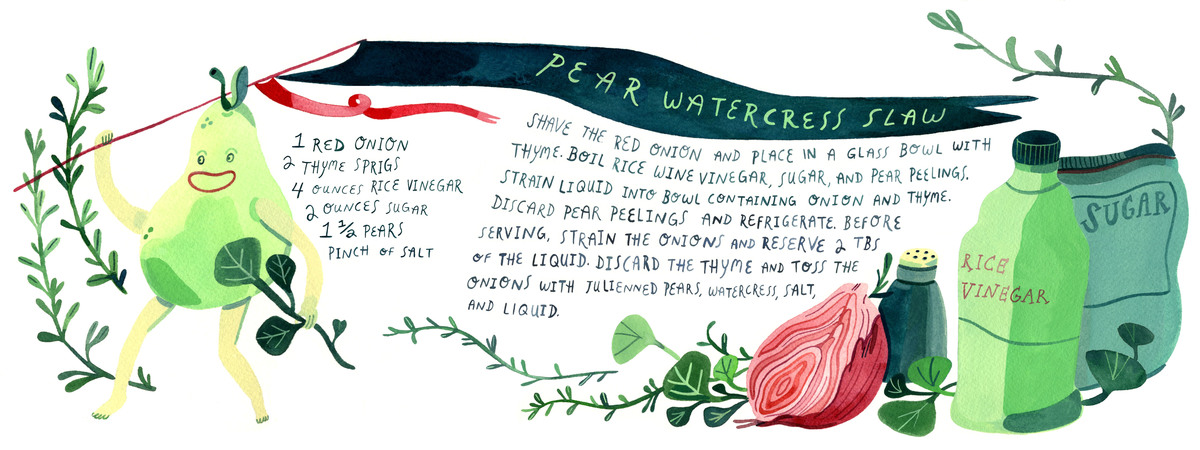 PEAR WATERCRESS SLAW
1 RED ONION
2 THYME SPRIGS
4 OUNCES RICE VINEGAR
2 OUNCES SUGAR
1 ½ PEARS
PINCH OF SALT
SHAVE THE RED ONION AND PLACE IN A GLASS BOWL WITH
THYME. BOIL RICE WINE VINEGAR, SUGAR, AND PEAR PEELINGS.
STRAIN LIQUID INTO BOWL CONTAINING ONION AND THYME.
DISCARD PEAR PEELINGS AND REFRIGERATE. BEFORE
SERVING, STRAIN THE ONIONS AND RESERVE 2 TBS
OF THE LIQUID. DISCARD THE THYME AND TOSS THE
ONIONS WITH JULIENNED PEARS, WATERCRESS, SALT,
AND LIQUID.
SUGAR
RICE
VINEGAR